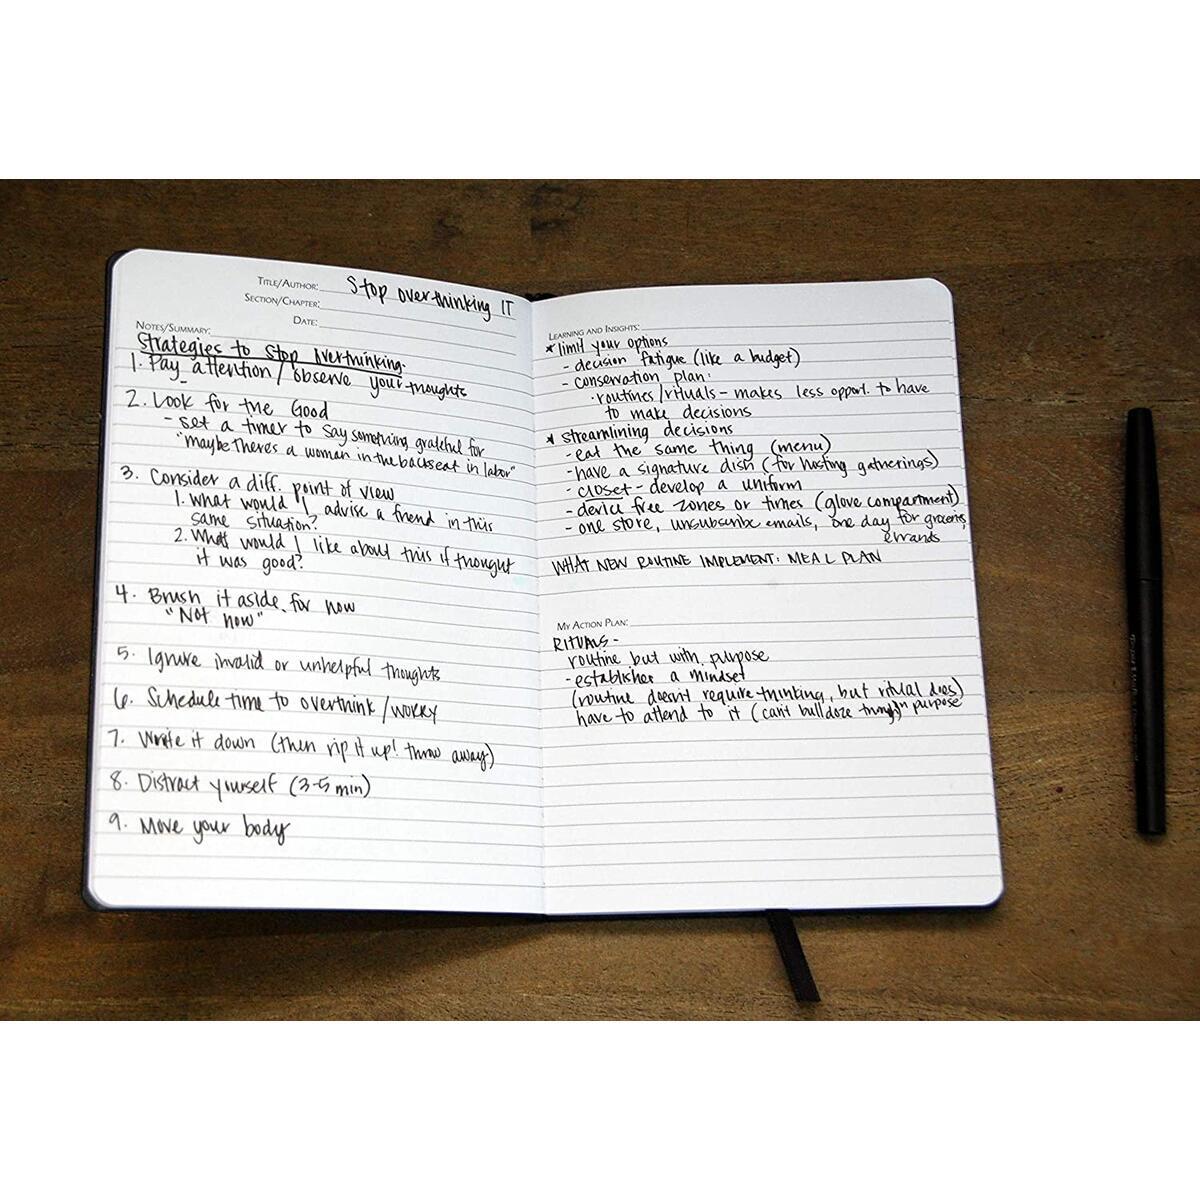 TITLE/AUTHOR: Stop overthinking IT
SECTION/CHAPTER:
DATE:
NOTES/SUMMARY:
Strategies to Stop Overthinking:
1. Pay attention / observe your thoughts
2. Look for the Good
- set a timer to say something grateful for
"maybe theres a woman in the backseat in labor"
3. Consider a diff. point of view
1. What would I advise a friend in this
same situation?
2. What would I like about this if thought
it was good?
4. Brush it aside for now
"Not now"
5. Ignore invalid or unhelpful thoughts
6. Schedule time to overthink / worry
7. Write it down (then rip it up! throw away)
8. Distract yourself (3-5 min)
9. Move your body
LEARNING AND INSIGHTS:
* limit your options
- decision fatigue (like a budget)
- conservation plan:
· routines / rituals - makes less opport. to have
to make decisions
* Streamlining decisions
- eat the same thing (menu)
- have a signature dish (for hosting gatherings)
- closet - develop a uniform
- device free zones or times (glove compartment)
- one store, unsubscribe emails, one day for groceries,
errands
WHAT NEW ROUTINE IMPLEMENT: MEAL PLAN
MY ACTION PLAN:
RITUALS -
routine but with purpose
- establishes a mindset
(routine doesn't require thinking, but ritual does)
have to attend to it (can't bulldoze through purpose